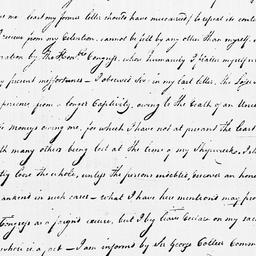 me lest my former letter should have miscarried, to repeat its conte
I receive from my Exertion, cannot be felt by any other than myself,
ration by The Honble Congress, whose humanity I flatter myself w
my present misfortunes – I observed Sir, in my last letter, the Inju
xperience from a longer Captivity, owing to the Death of an Un
e moneys owing me, for which I have not at present the least
th many others being lost at the time of my Shipwreck.
tly lose the whole, unless the persons indebted, discover an hone
ankind in such cases – what I have here mentioned may pro
Congress as a feigned excuse, but I beg leave to declare on my sac
which is a fact – I am informed by Sir George Collier Comm